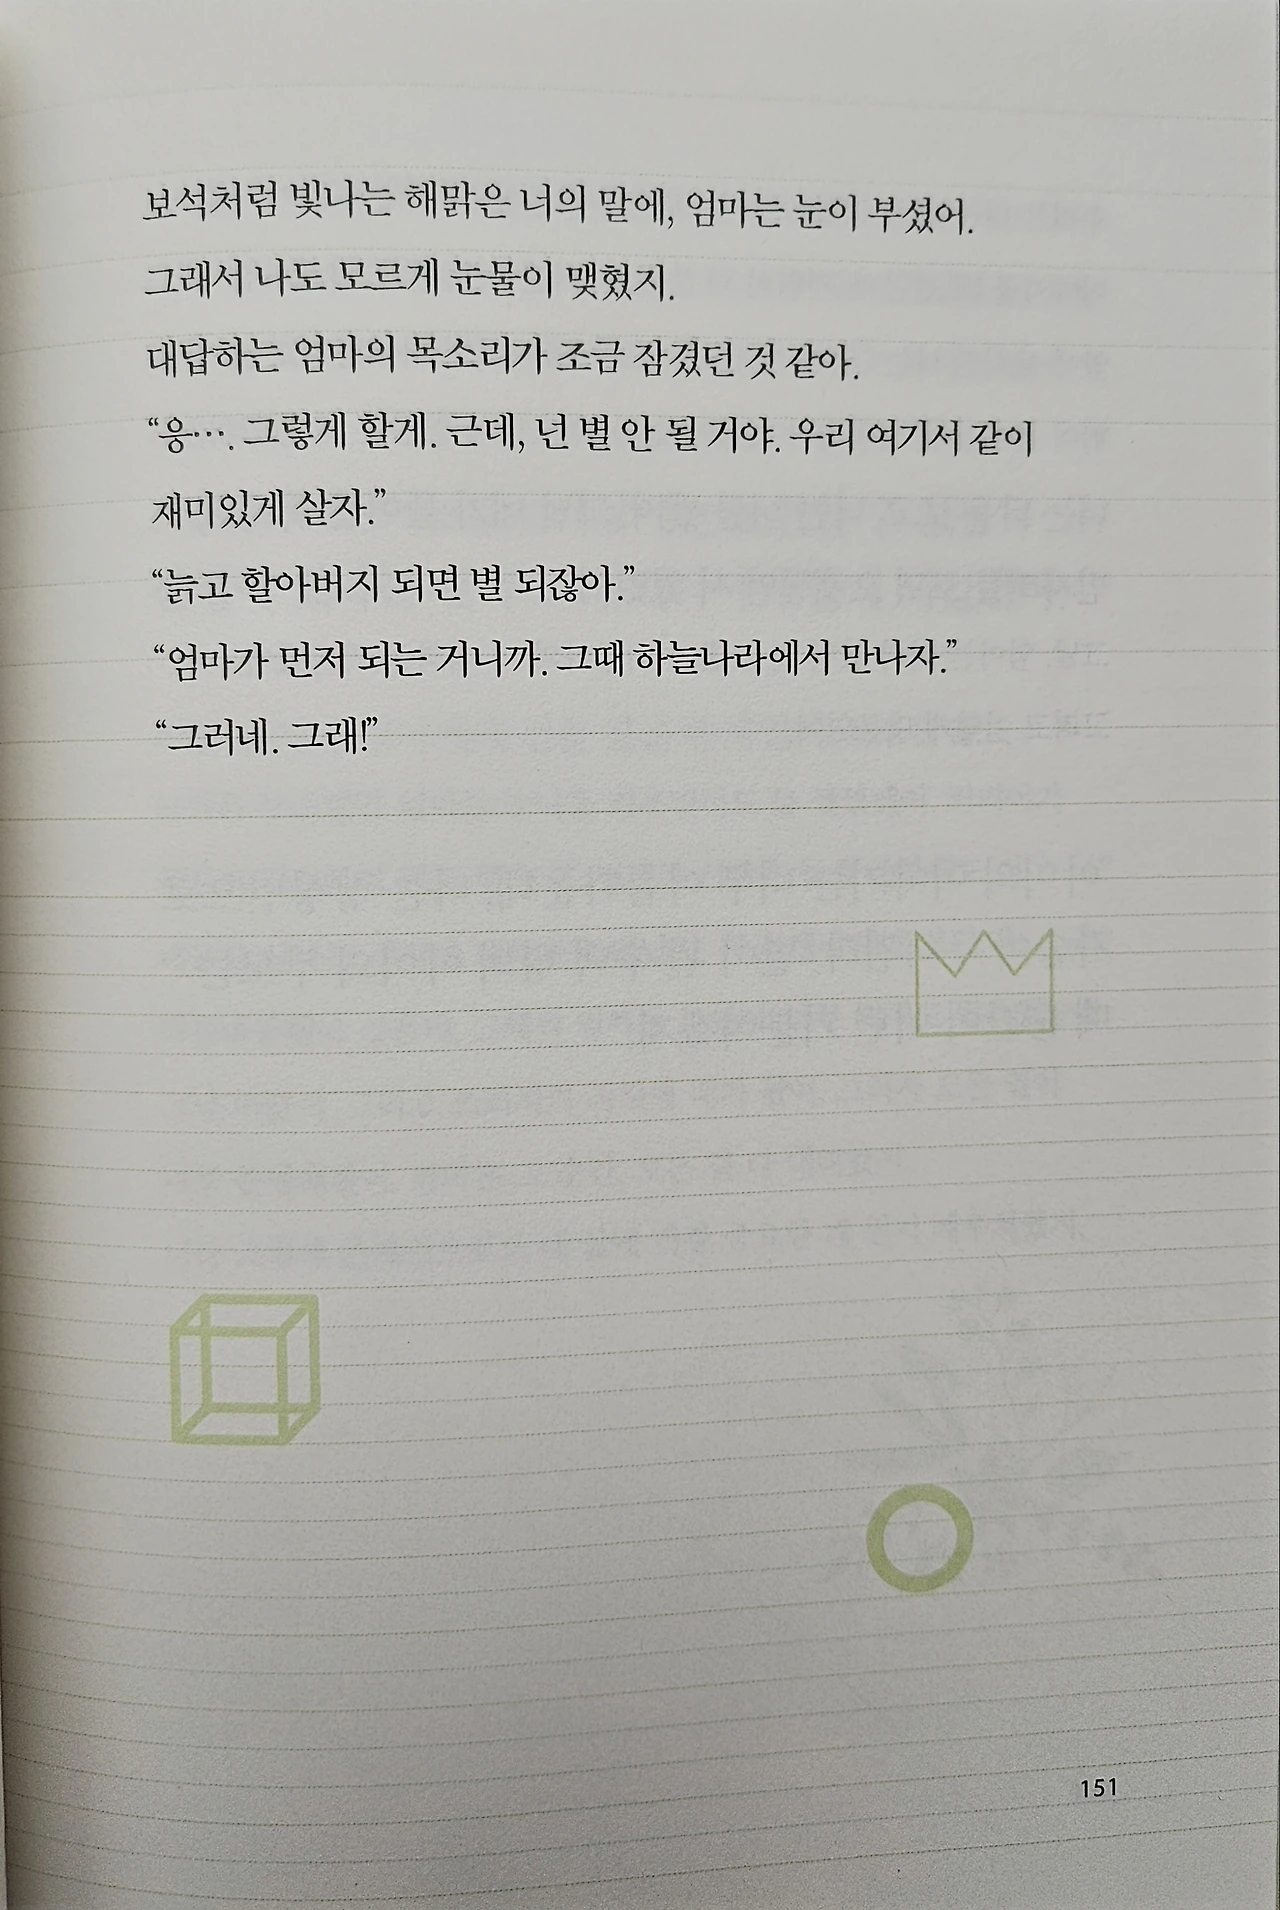 보석처럼 빛나는 해맑은 너의 말에, 엄마는 눈이 부셨어.
그래서 나도 모르게 눈물이 맺혔지.
대답하는 엄마의 목소리가 조금 잠겼던 것 같아.
“응…. 그렇게 할게. 근데, 넌 별 안 될 거야. 우리 여기서 같이
재미있게 살자.”
“늙고 할아버지 되면 별 되잖아.”
“엄마가 먼저 되는 거니까. 그때 하늘나라에서 만나자.”
“그러네. 그래!”
151